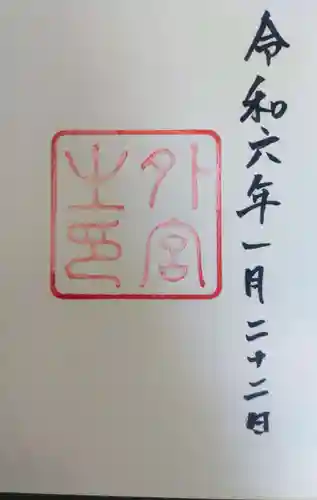 令和六年一月二十二日
外宮
之印